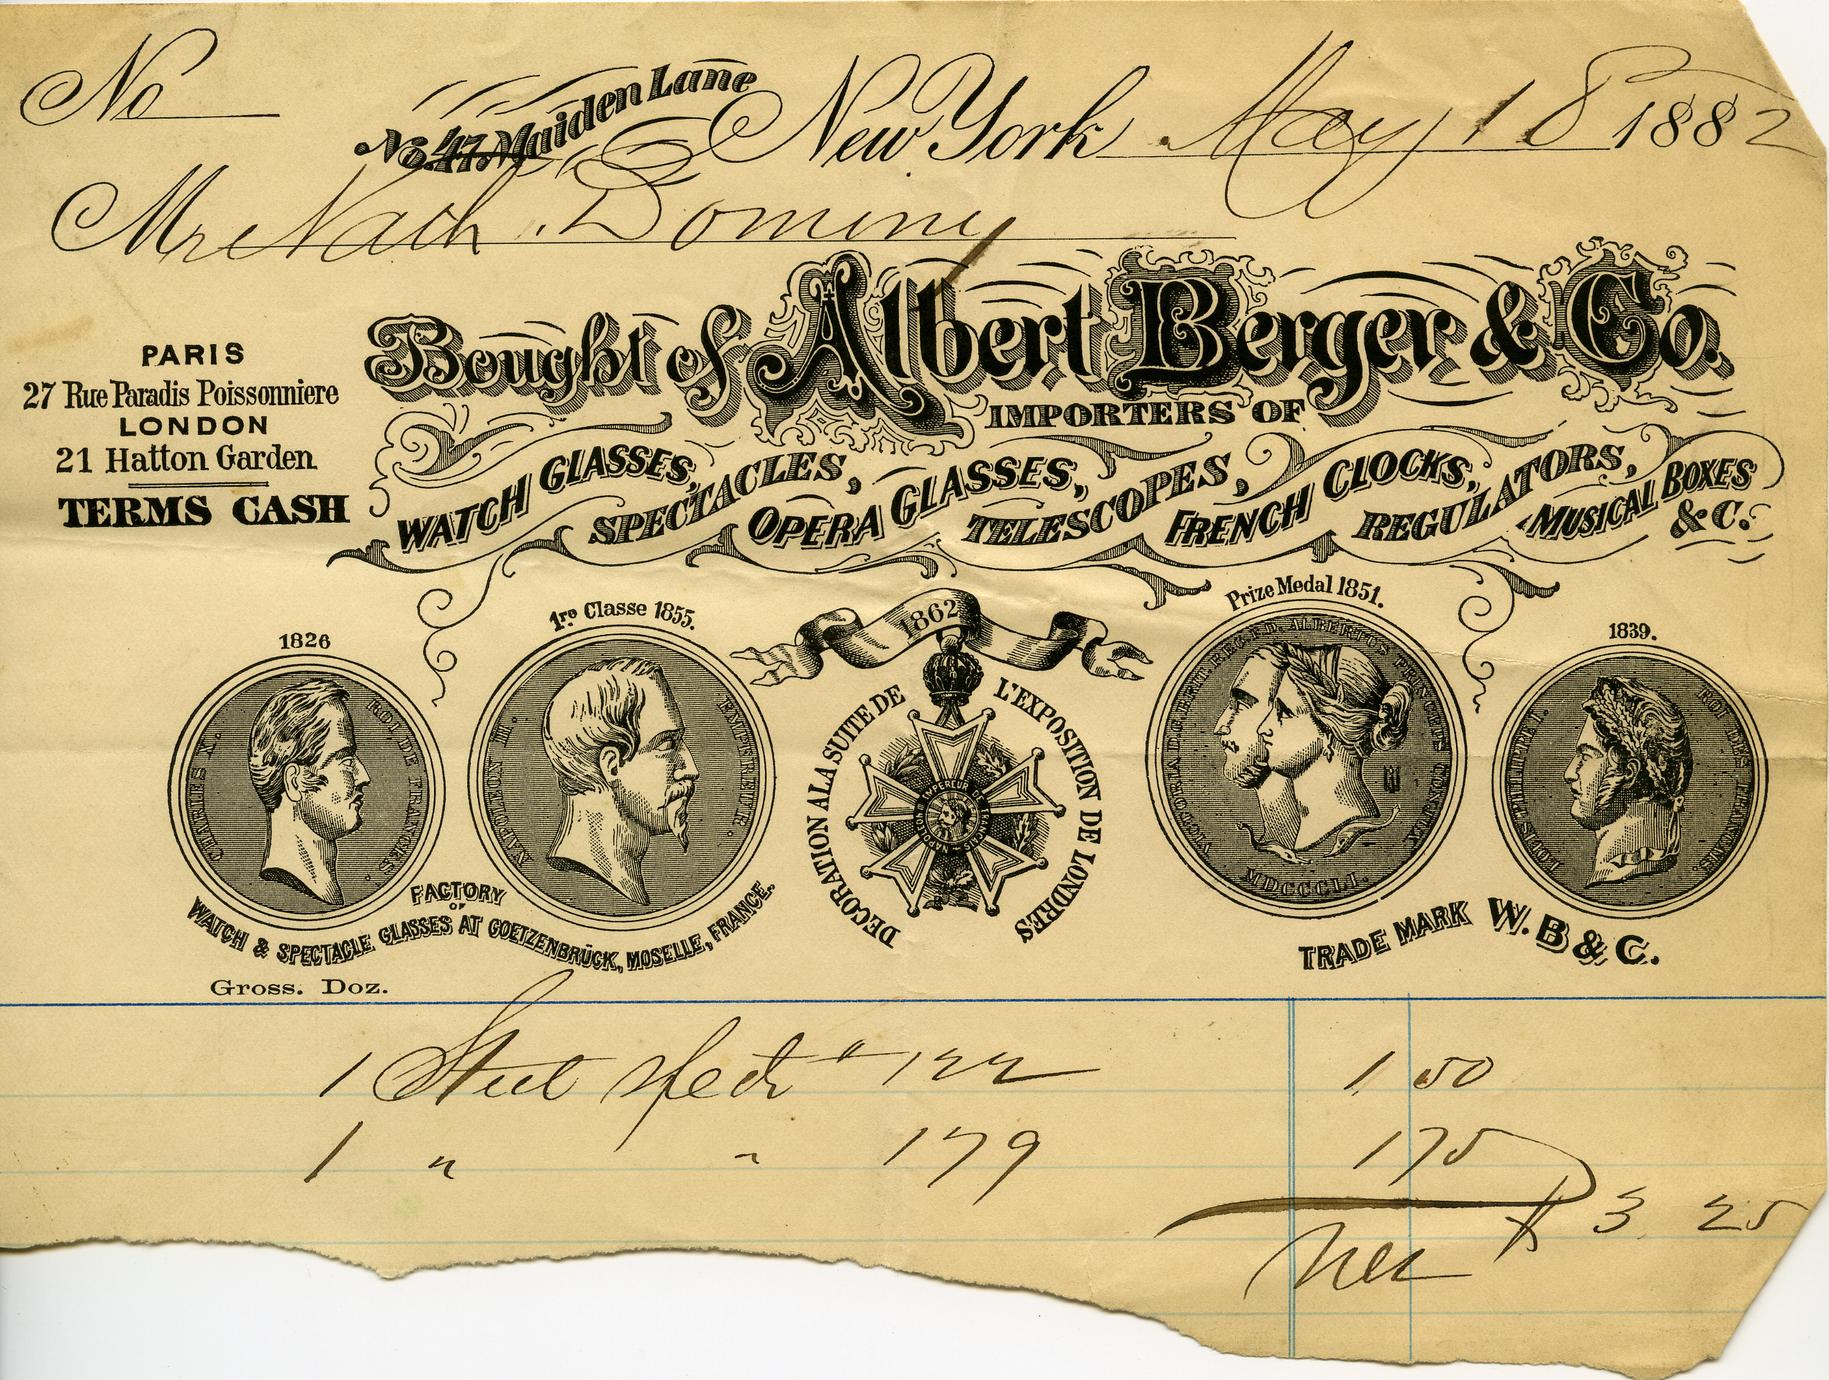 No
No. 47 Maiden Lane
New York May 18 1882
Mr Nath. Dominy
Bought of Albert Berger & Co.
IMPORTERS OF
WATCH GLASSES, SPECTACLES, OPERA GLASSES, TELESCOPES, FRENCH CLOCKS, REGULATORS, MUSICAL BOXES &C.
PARIS
27 Rue Paradis Poissonniere
LONDON
21 Hatton Garden
TERMS CASH
1826
CHARLES X. ROI DE FRANCE.
1re Classe 1855.
NAPOLEON III. EMPEREUR.
1862
DECORATION A LA SUITE DE L'EXPOSITION DE LONDRES
NAPOLEON EMPEREUR
Prize Medal 1851.
VICTORIA D.G. BRIT. REG. F.D. ALBERTUS PRINCEPS CONJUX.
MDCCCLI.
1839.
LOUIS PHILIPPE I. ROI DES FRANÇAIS.
FACTORY
OF
WATCH & SPECTACLE GLASSES AT GOETZENBRÜCK, MOSELLE, FRANCE.
TRADE MARK W. B & C.
Gross. Doz.
1 Steel Specs # 122 1 50
1 " " 179 1 75
Net $ 3 25